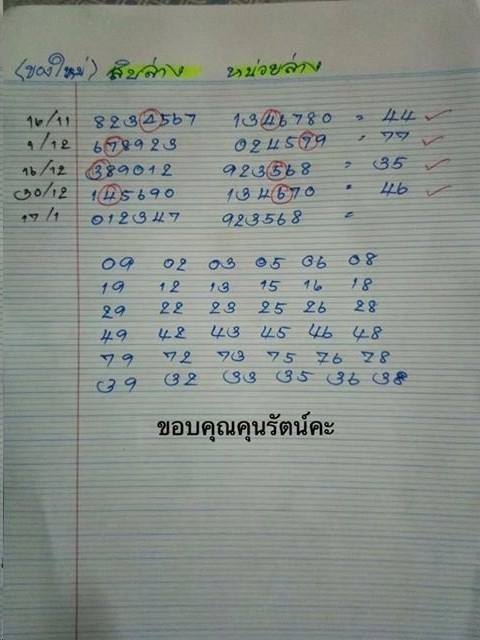 (ของใหม่) สิบล่าง หน่วยล่าง
16/11 8234567 1346780 = 44 ✓
1/12 678923 024579 = 77 ✓
16/12 389012 923568 = 35 ✓
30/12 145690 134670 = 46 ✓
17/1 012347 923568 =
09 02 03 05 06 08
19 12 13 15 16 18
29 22 23 25 26 28
49 42 43 45 46 48
79 72 73 75 76 78
39 32 33 35 36 38
ขอบคุณคุนรัตน์คะ